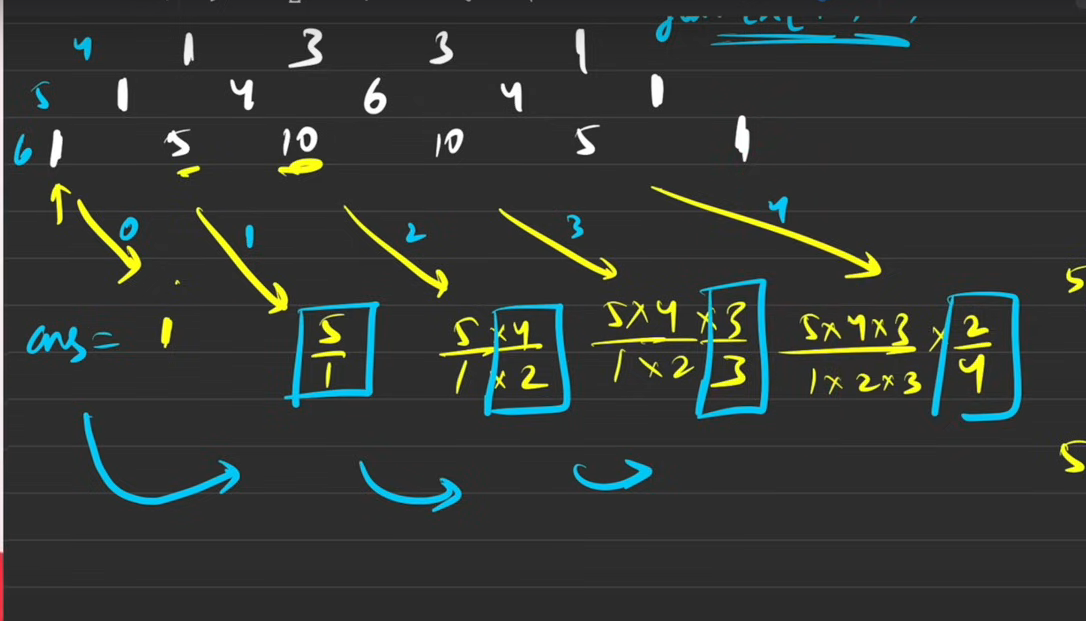 4 1 3 3 1
5 1 4 6 4 1
6 1 5 10 10 5 1
0 1 2 3 4
ans = 1 5/1 5×4/1×2 5×4×3/1×2×3 5×4×3×2/1×2×3 4
5
5